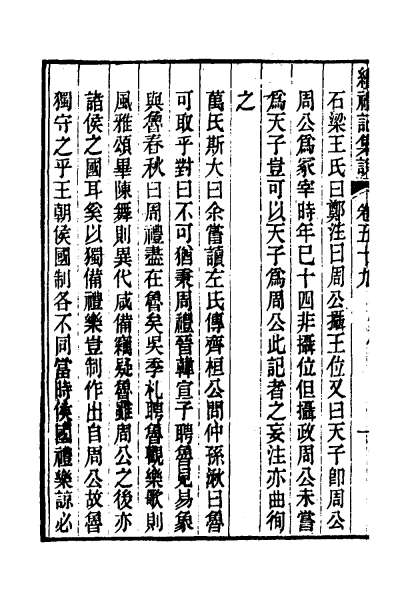 續禮記集說 卷五十九
石梁王氏曰鄭注曰周公攝王位又曰天子卽周公
周公爲冢宰時年已十四非攝位但攝政周公未嘗
爲天子豈可以天子爲周公此記者之妄注亦曲徇
之
萬氏斯大曰余嘗讀左氏傳齊桓公問仲孫湫曰魯
可取乎對曰不可猶秉周禮晉韓宣子聘魯見易象
與魯春秋曰周禮盡在魯矣吳季札聘魯觀樂歌則
風雅頌畢陳舞則異代咸備竊疑魯雖周公之後亦
諸侯之國耳奚以獨備禮樂豈制作出自周公故魯
獨守之乎王朝侯國制各不同當時侯國禮樂諒必